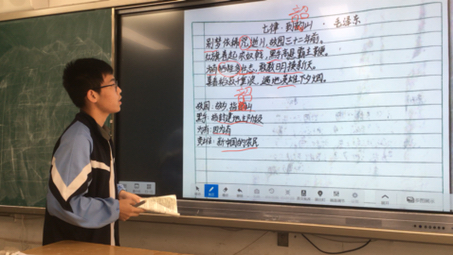 韶
七律·到韶山 毛泽东
别梦依稀咒逝川,故园三十二年前。
红旗卷起农奴戟,黑手高悬霸主鞭。
为有牺牲多壮志,敢教日月换新天。
喜看稻菽千重浪,遍地英雄下夕烟。
韶
故园:故乡 指韶山
黑手:指封建地主阶级
为有:因为有
英雄:新中国的农民